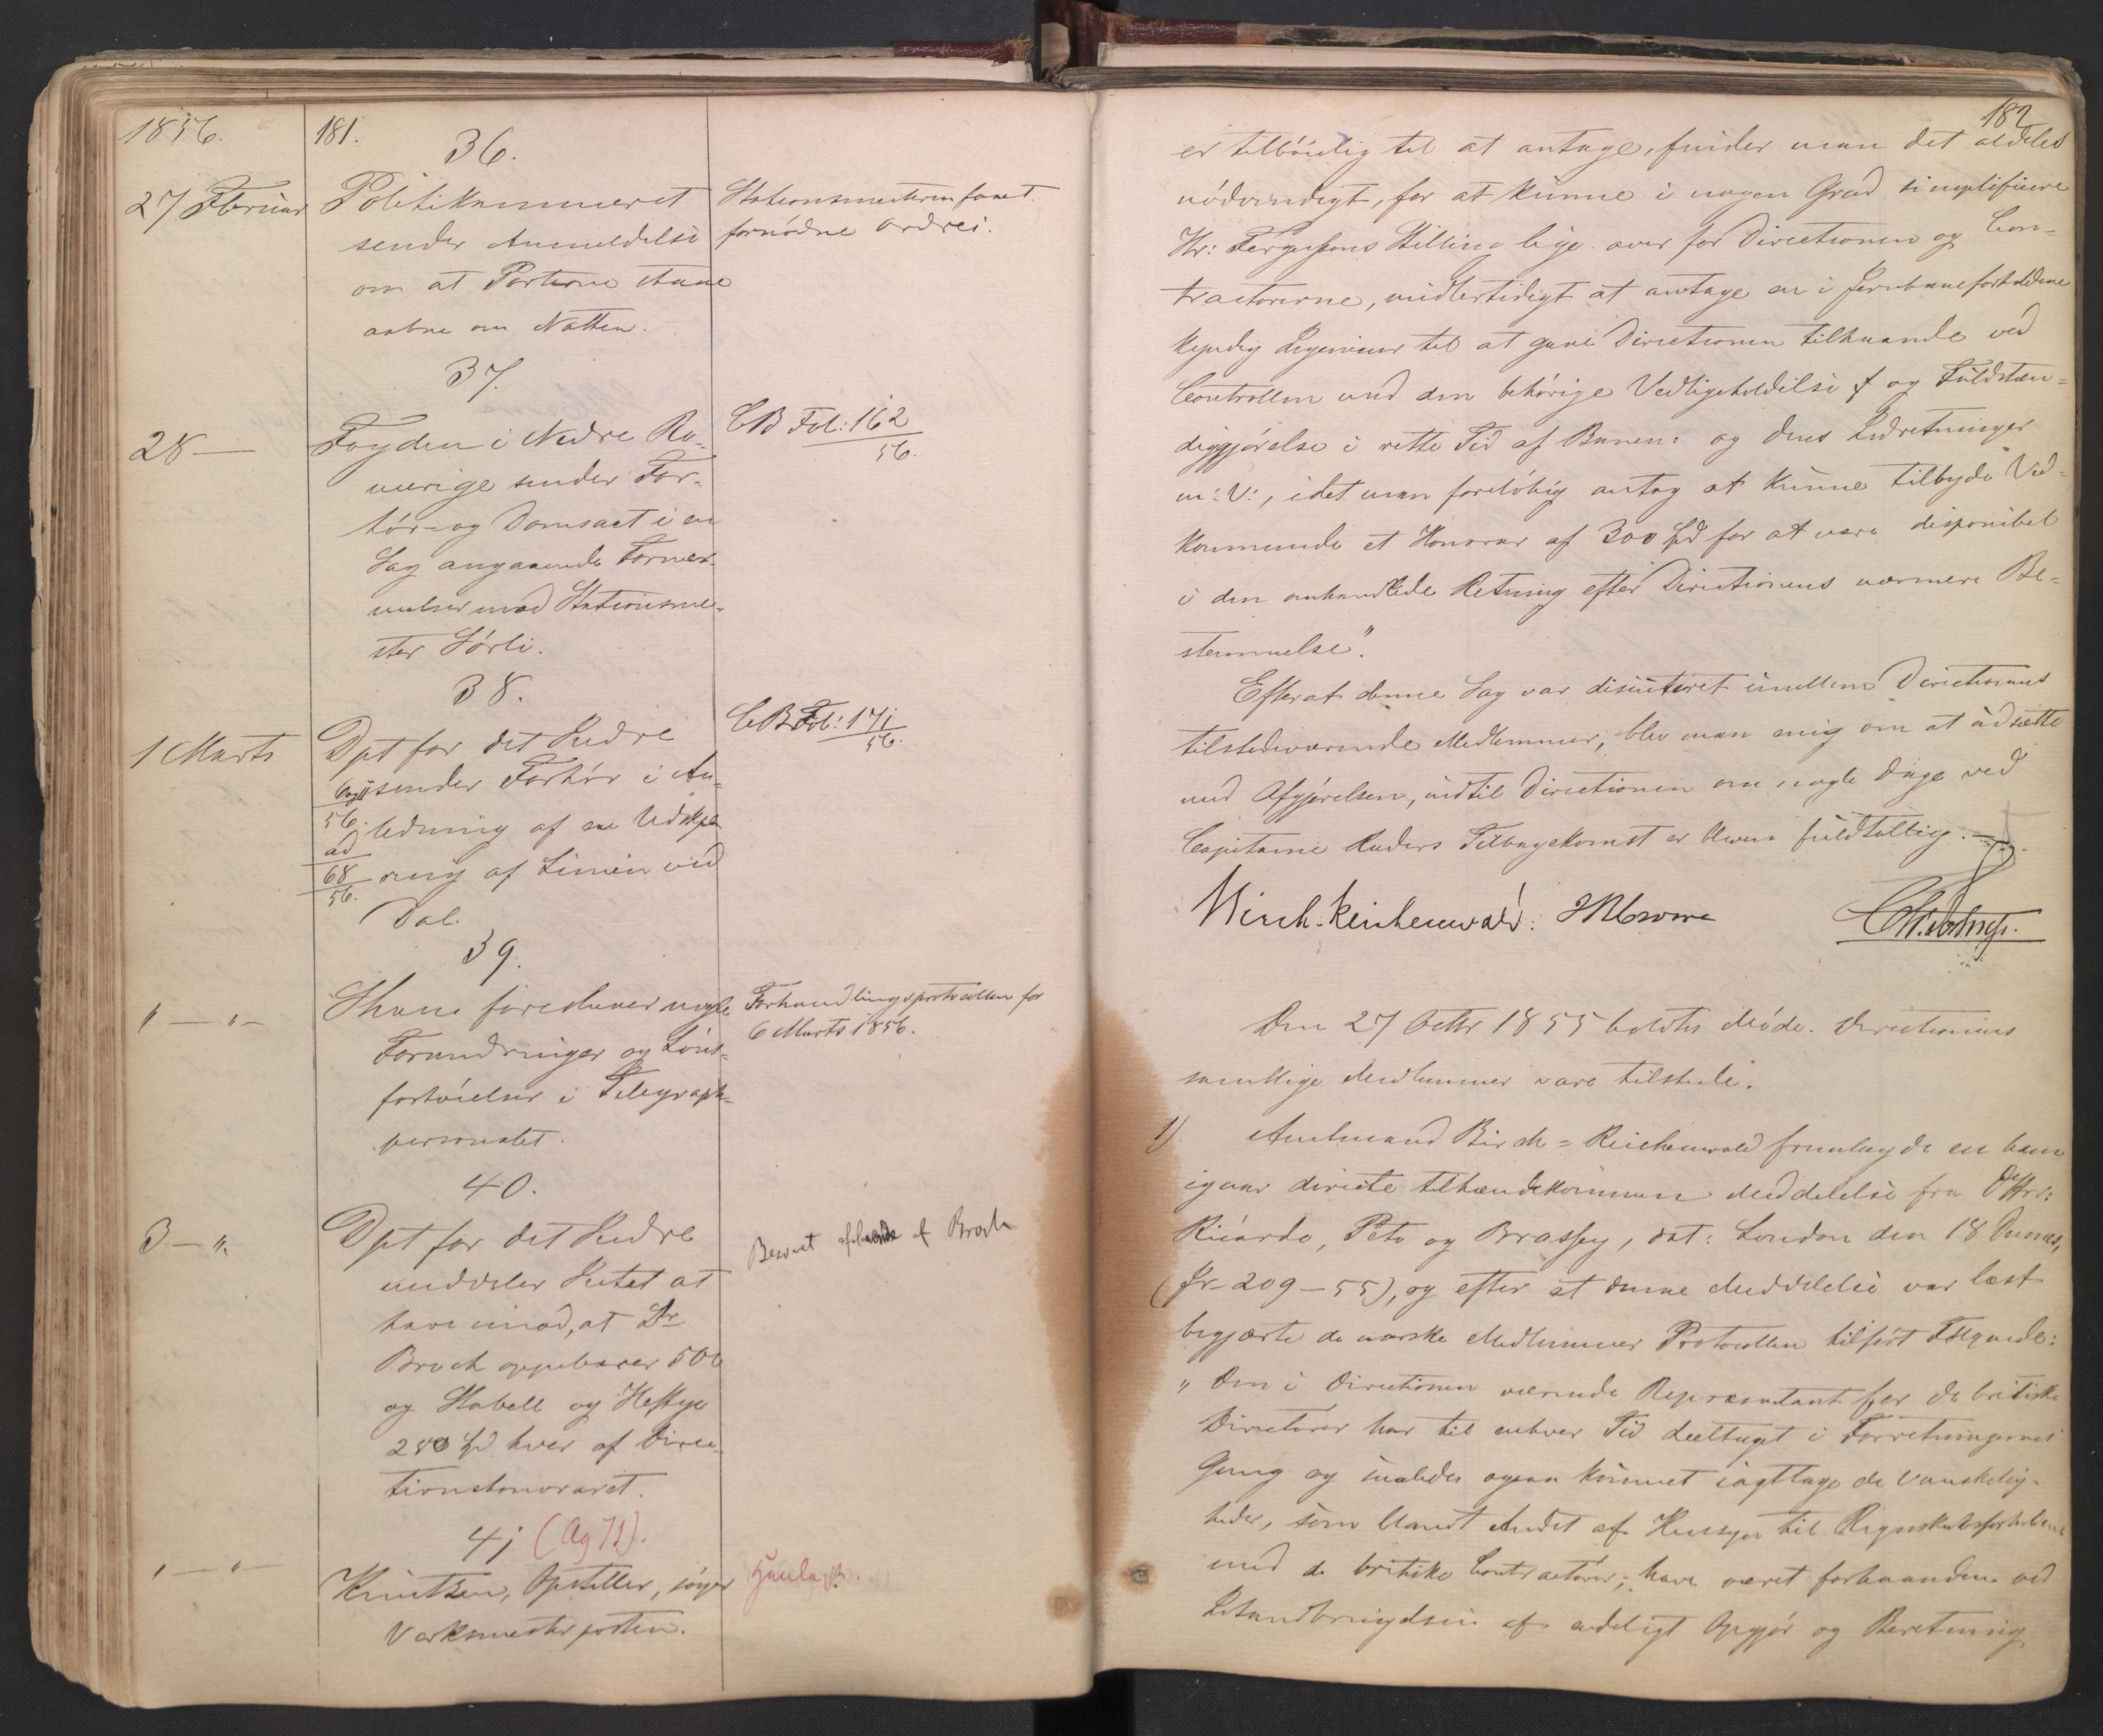 1856.
181.
36.
27 Februar
Politikammeret
sender Anmeldelse
om at Portene staae
aabne om Natten.
Stationsmesteren faaet
fornødne Ordrer.
37.
28 —
Fogden i Nedre Ro-
merige sender For-
hør- og Domsact i en
Sag angaaende Fornær-
melser mod Stationsme-
ster Sørli.
CB Fol: 162
56.
38.
1 Marts
Dpt for det Indre
sender Forhør i An-
56.
ledning af en Udskæ
ad
68
56.
ring af Linien ved
Dal.
CB Fol: 171
56.
39.
" — " —
foreslaaer nogle
Forandringer og Løns-
forhøielser i Telegraph-
personalet.
Forhandlingsprotocollen for
6 Marts 1856.
40.
3 — ".
Dpt for det Indre
meddeler Intet at
have imod, at Dr
Broch oppebærer 500
og Stabell og Heftye
250 Spd hver af Direc-
tionshonoraret.
Besvaret af Broch
41 (Ag 71).
" — " —
Knutzen, Opstiller, søger
Værkmesterposten.
182
er tilbøielig til at antage, finder man det aldeles
nødvendigt, for at kunne i nogen Grad simplificere
Hr: Fergussons Stilling lige over for Directionen og Con-
tractorerne, midlertidigt at antage en i Jernbaneforholdene
kyndig Ingenieur til at gaae Directionen tilhaande ved
Controllen med den behørige Vedligeholdelse af og Fuldstæn-
diggjørelse i rette Tid af Banen og dens Indretninger
m: V:, idet man foreløbig antog at kunne tilbyde Ved-
kommende et Honorar af 300 Spd for at være disponibel
i den omhandlede Retning efter Directionens nærmere Be-
stemmelse".
Efterat denne Sag var discuteret imellem Directionens
tilstedeværende Medlemmer, blev man enig om at udsætte
med Afgjørelsen, indtil Directionen om nogle Dage ved
Capitaine Ruders Tilbagekomst er bleven fuldtallig. —
Birch-Reichenwald. HR
Den 27 Octbr 1855 holdtes Møde. Directionens
samtlige Medlemmer vare tilstede.
1).
Amtmand Birch-Reichenwald fremlagde en ham
igaar directe tilhændekommen Meddelelse fra DHrr:
Ricardo, Peto og Brassey, dat: London den 18 Dennes,
(Jr. 209 — 55), og efter at denne Meddelelse var læst
begjærte de norske Medlemmer Protocollen tilført Følgende:
" Den i Directionen værende Repræsentant for de britiske
Directører har til enhver Tid deeltaget i Forretningernes
Gang og saaledes ogsaa kunnet iagttage de Vanskelig-
heder, som blandt Andet af Hensyn til Regnskabsforholdene
med de britiske Contractører, have været forhaanden ved
Istandbringelsen af endeligt Opgjør og Beretning